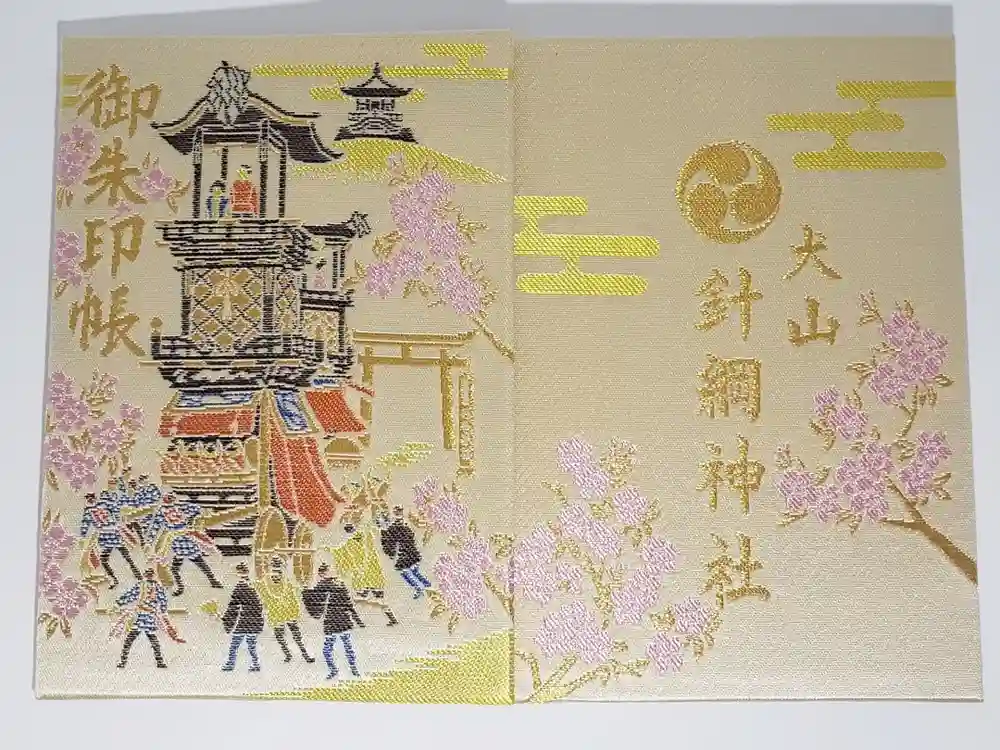 御朱印帳
犬山
針綱神社